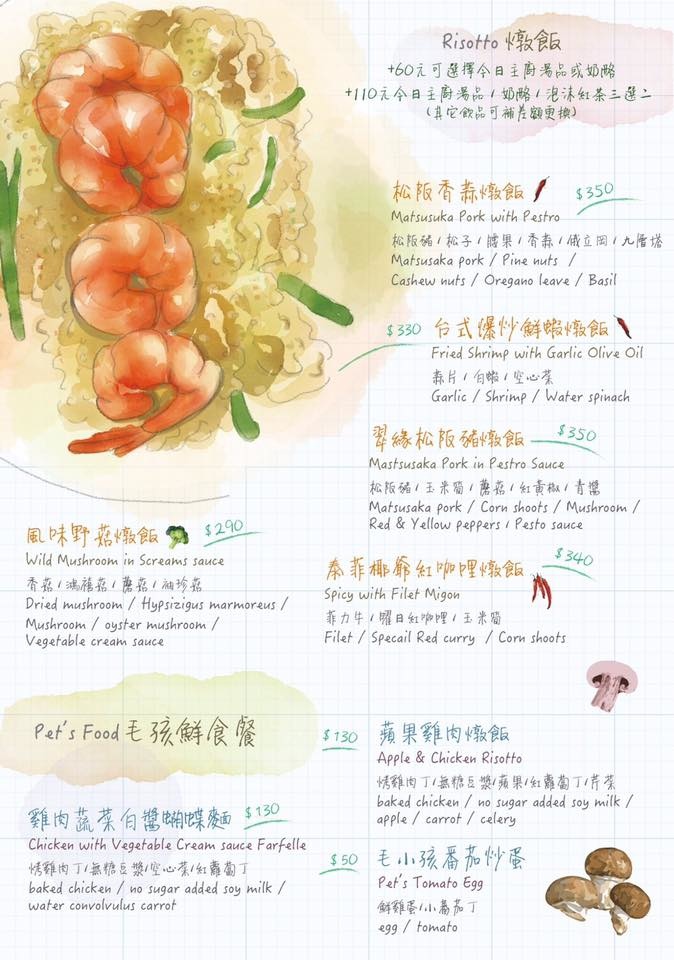 Risotto 燉飯
+60元可選擇今日主廚湯品或奶酪
+110元今日主廚湯品/奶酪/泡沫紅茶三選二
(其它飲品可補差額更換)
松阪香蒜燉飯 $350
Matsusuka Pork with Pestro
松阪豬/松子/腰果/香蒜/俄立岡/九層塔
Matsusuka pork / Pine nuts /
Cashew nuts / Oregano leave / Basil
$330 台式爆炒鮮蝦燉飯
Fried Shrimp with Garlic Olive Oil
蒜片/白蝦/空心菜
Garlic / Shrimp / Water spinach
翠綠松阪豬燉飯 $350
Mastsusaka Pork in Pestro Sauce
松阪豬/玉米筍/蘑菇/紅黃椒/青醬
Matsusuka pork / Corn shoots / Mushroom /
Red & Yellow peppers / Pesto sauce
風味野菇燉飯 $290
Wild Mushroom in Screams sauce
香菇/鴻禧菇/蘑菇/袖珍菇
Dried mushroom / Hypsizigus marmoreus /
Mushroom / oyster mushroom /
Vegetable cream sauce
泰菲椰爺紅咖哩燉飯 $340
Spicy with Filet Migon
菲力牛/曜日紅咖哩/玉米筍
Filet / Specail Red curry / Corn shoots
Pet's Food 毛孩鮮食餐
雞肉蔬菜白醬蝴蝶麵 $130
Chicken with Vegetable Cream sauce Farfelle
烤雞肉丁/無糖豆漿/空心菜/紅蘿蔔丁
baked chicken / no sugar added soy milk /
water convolvulus carrot
$130 蘋果雞肉燉飯
Apple & Chicken Risotto
烤雞肉丁/無糖豆漿/蘋果/紅蘿蔔丁/芹菜
baked chicken / no sugar added soy milk /
apple / carrot / celery
$50 毛小孩番茄炒蛋
Pet's Tomato Egg
鮮雞蛋/小番茄丁
egg / tomato